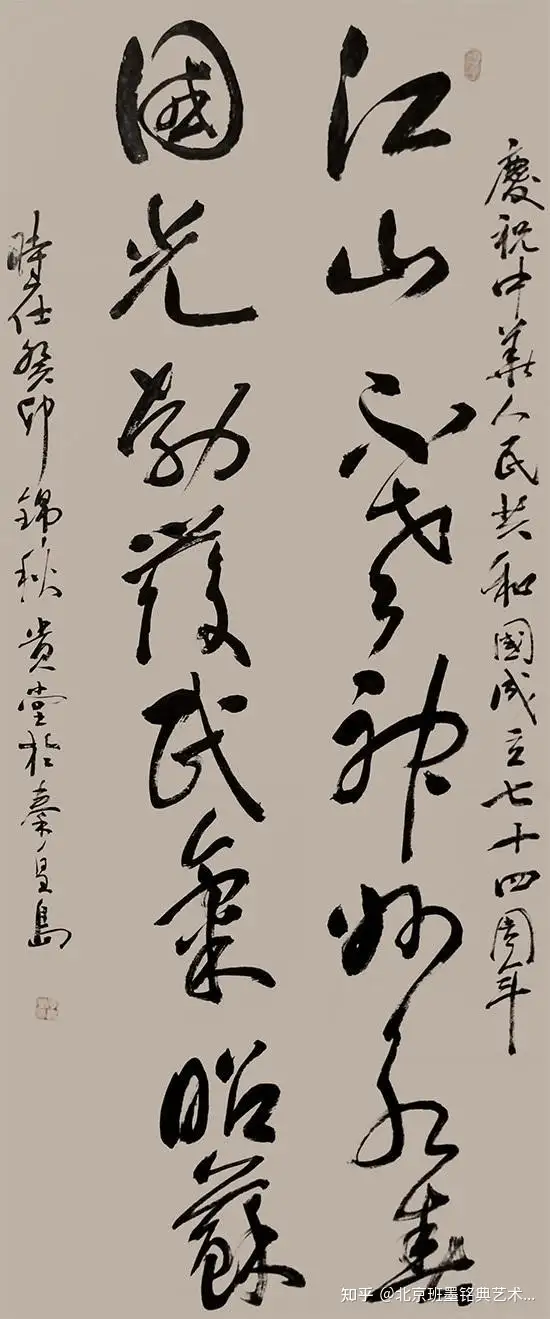 慶祝中華人民共和國成立七十四周年
江山不老神州永春
國光勃發民氣昭蘇
時在癸卯錦秋貴堂於秦皇島
知乎 @北京班墨铭典艺术...